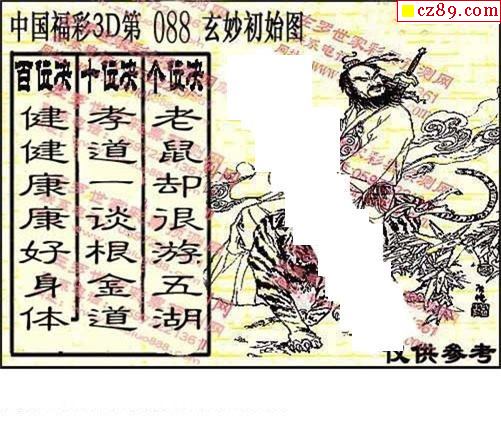 cz89.com
中国福彩3D第 088 玄妙初始图
百位决
健健康康好身体
十位决
孝道一谈根金道
个位决
老鼠却很游五湖
仅供参考